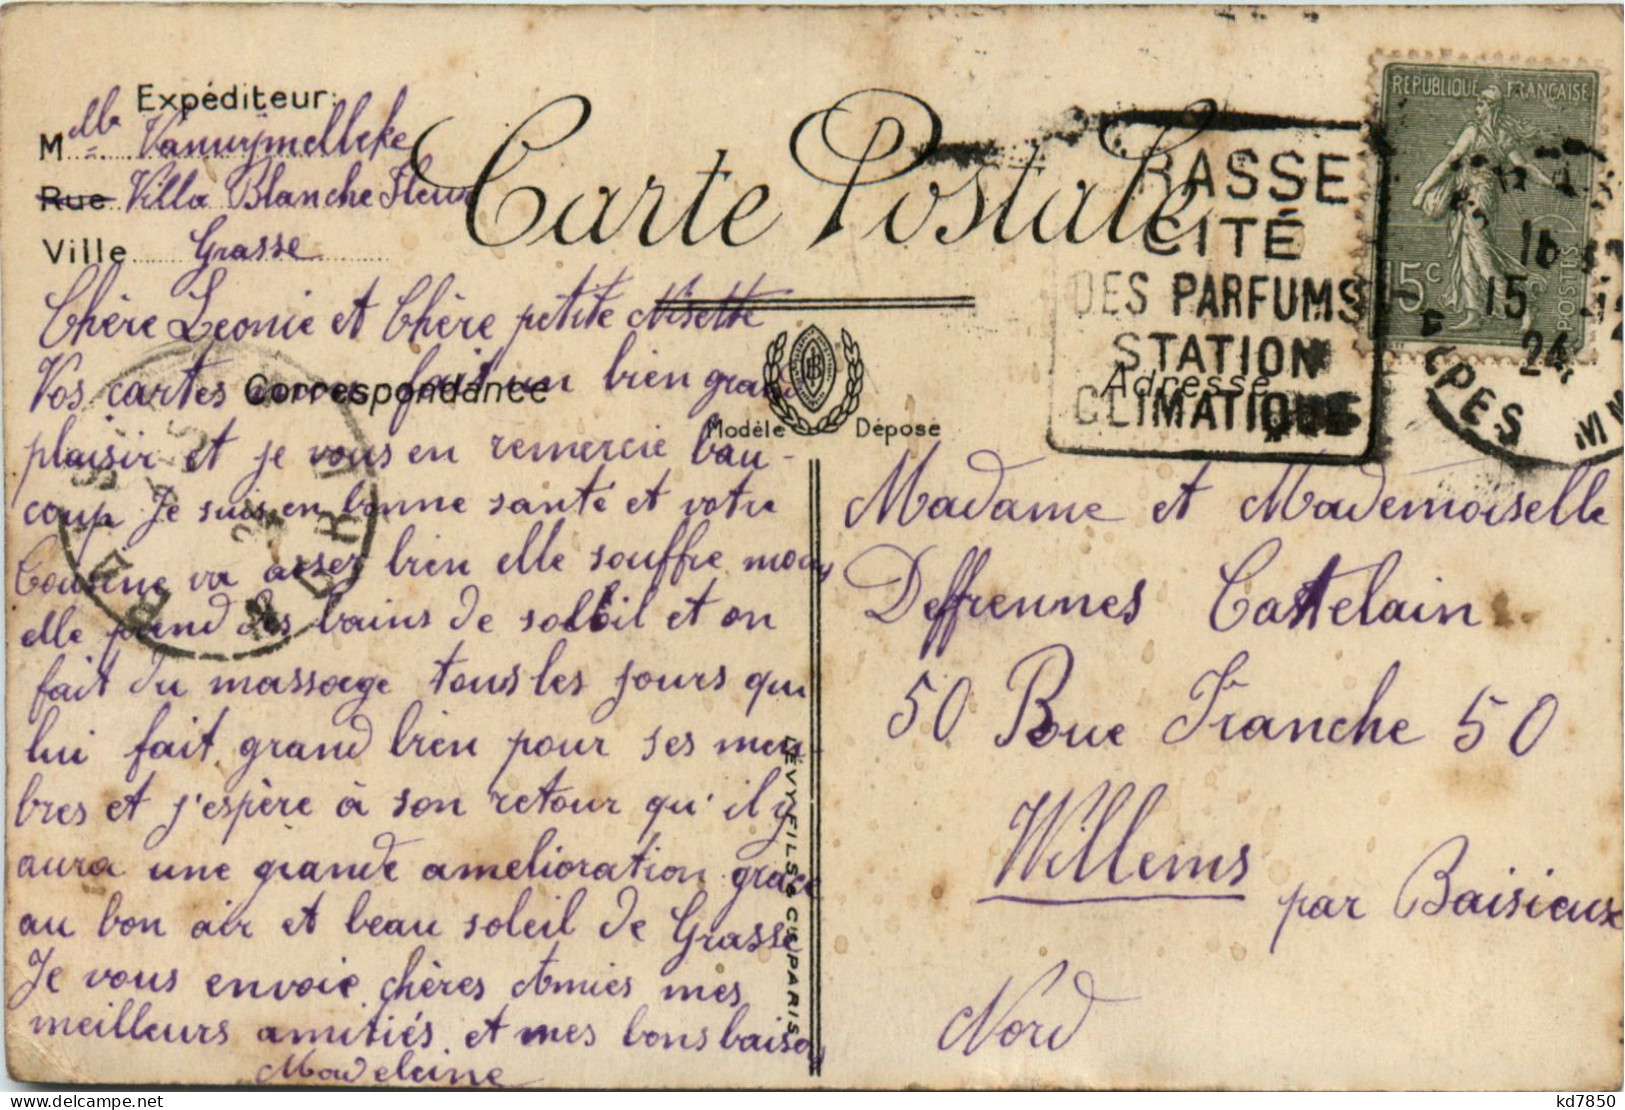 Expéditeur:
Mlle Vanurymelbeke
Rue Villa Blanche Fleur
Ville Grasse
Carte Postale
Chère Leonie et Chère petite Nisette
Vos cartes fait un bien grand
Correspondance
plaisir et je vous en remercie bau-
coup Je suis en bonne santé et votre
Cousine va asser bien elle souffre moins
elle prend des bains de soleil et on
fait du massage tous les jours qui
lui fait grand bien pour ses mem
bres et j'espère à son retour qu'il y
aura une grande amelioration grace
au bon air et beau soleil de Grasse
Je vous envoie chères Amies mes
meilleurs amitiés et mes bons baisers
Madeleine
Modèle Déposé
LEVY FILS & Cie PARIS
RASSE
CITÉ
DES PARFUMS
STATION
CLIMATIQUE
REPUBLIQUE FRANÇAISE
15c
POSTES
15
24
ALPES MM
Adresse
Madame et Mademoiselle
Deffrennes Castelain
50 Rue Franche 50
Willems
par Baisieux
Nord
kd7850